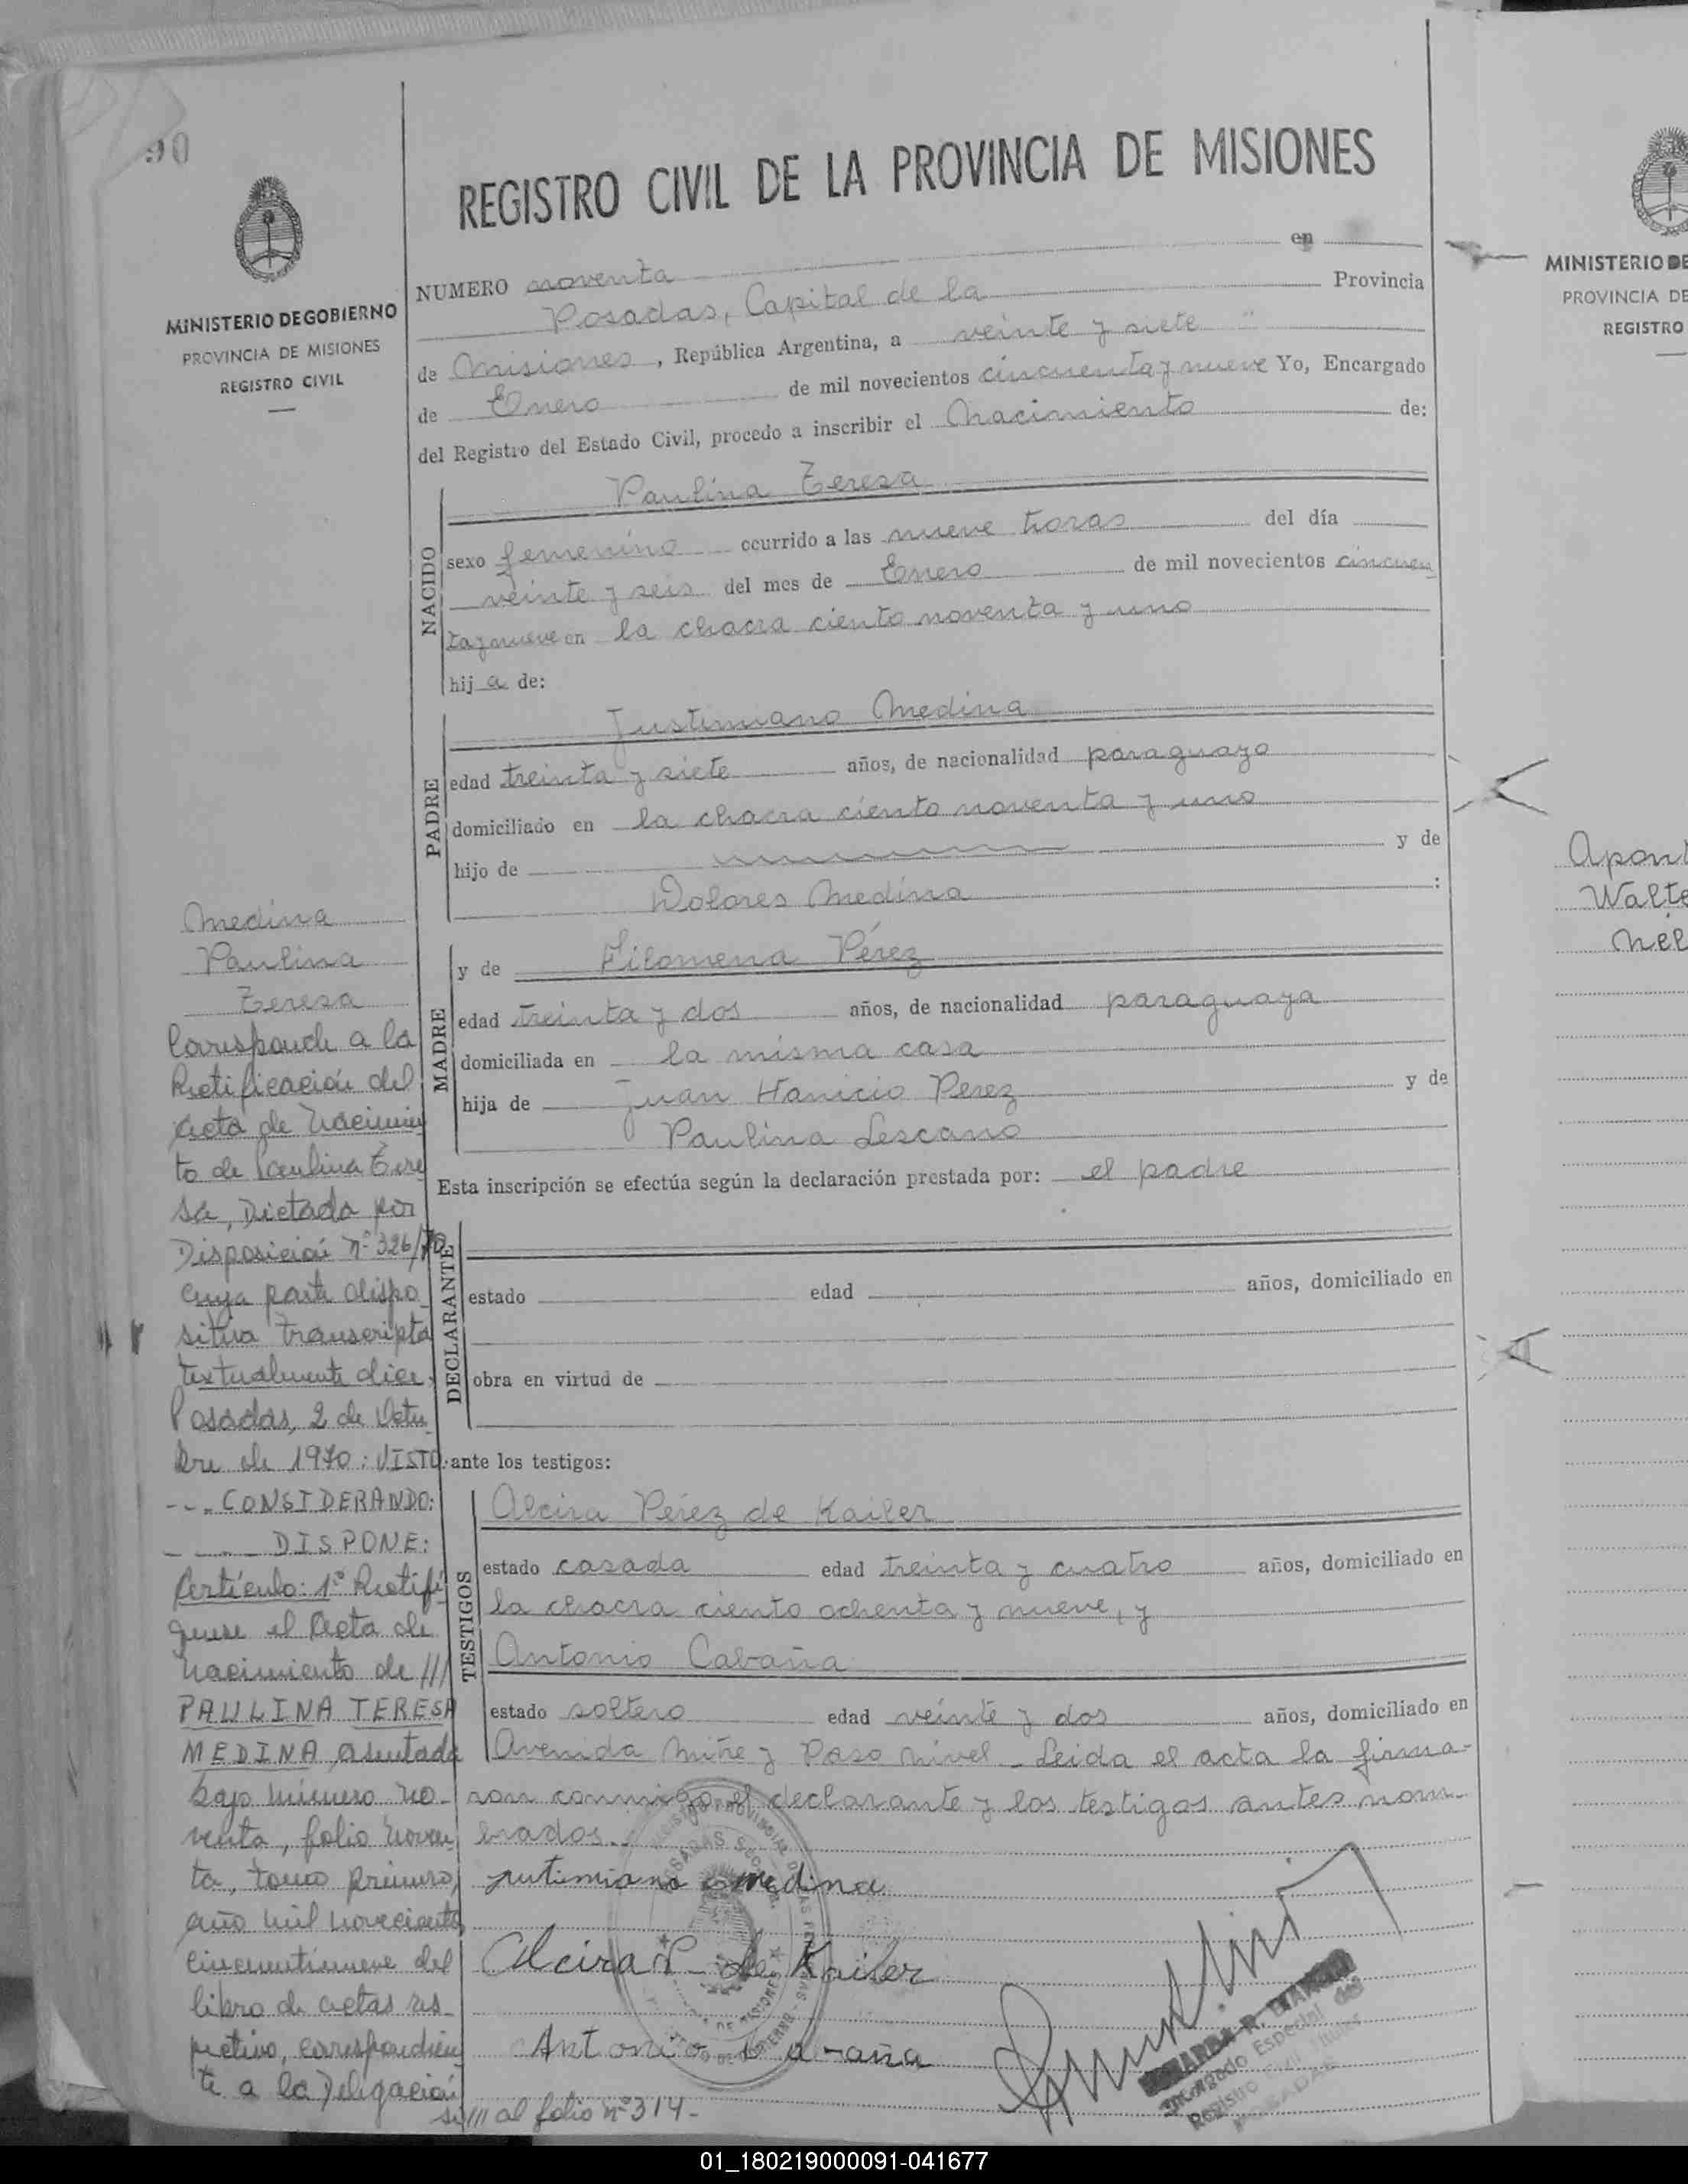 90
MINISTERIO DE GOBIERNO
PROVINCIA DE MISIONES
REGISTRO CIVIL
REGISTRO CIVIL DE LA PROVINCIA DE MISIONES
NUMERO noventa en
Posadas, Capital de la Provincia
de Misiones, República Argentina, a veinte y siete
de Enero de mil novecientos cincuenta y nueve Yo, Encargado
del Registro del Estado Civil, procedo a inscribir el Nacimiento de:
NACIDO
Paulina Teresa
sexo femenino ocurrido a las nueve horas del día
veinte y seis del mes de Enero de mil novecientos cincuen
ta y nueve en la chacra ciento noventa y uno
hij a de:
PADRE
Justimiano Medina
edad treinta y siete años, de nacionalidad paraguayo
domiciliado en la chacra ciento noventa y uno
hijo de y de
Dolores Medina :
MADRE
y de Filomena Pérez
edad treinta y dos años, de nacionalidad paraguaya
domiciliada en la misma casa
hija de Juan Hanicio Perez y de
Paulina Lescano
Esta inscripción se efectúa según la declaración prestada por: el padre
DECLARANTE
estado edad años, domiciliado en
obra en virtud de
ante los testigos:
TESTIGOS
Alcira Pérez de Kailer
estado casada edad treinta y cuatro años, domiciliado en
la chacra ciento ochenta y nueve, y
Antonio Cabaña
estado soltero edad veinte y dos años, domiciliado en
Avenida Mitre y Paso Nivel - Leida el acta la firma-
ron conmigo el declarante y los testigos antes nom-
brados.
justimiano medina
Alcira P. de Kailer
Antonio Cabaña
Encargado Especial del
Registro Civil Titular
POSADAS
Medina
Paulina
Teresa
Corresponde a la
Rectificación del
acta de Nacimien
to de Paulina Tere
sa, Dictada por
Disposición Nº 326/70
cuya parte dispo
sitiva transcripta
textualmente dice:
Posadas, 2 de Octu
bre de 1970: VISTO:
--- CONSIDERANDO:
---- DISPONE:
Artículo: 1º Rectifí
quese el Acta de
nacimiento de ///
PAULINA TERESA
MEDINA, asentada
bajo número no-
venta, folio noven
ta, tomo primero,
año mil novecientos
cincuentinueve del
libro de actas res-
pectivo, correspondien
te a la Delegación
si/// al folio nº 314-
MINISTERIO DE
PROVINCIA DE
REGISTRO
Walte
Nél
01_180219000091-041677